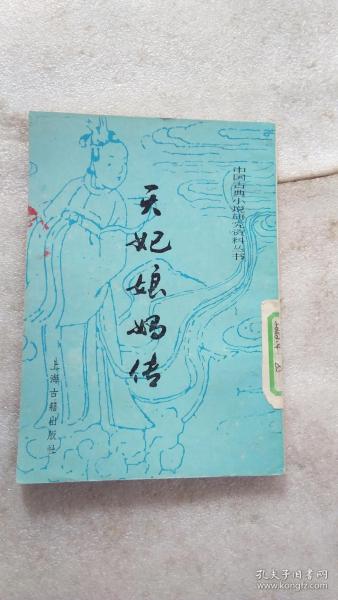 中国古典小说研究资料丛书
天妃娘妈传
上海古籍出版社
孔夫子旧书网
www.kongfz.com